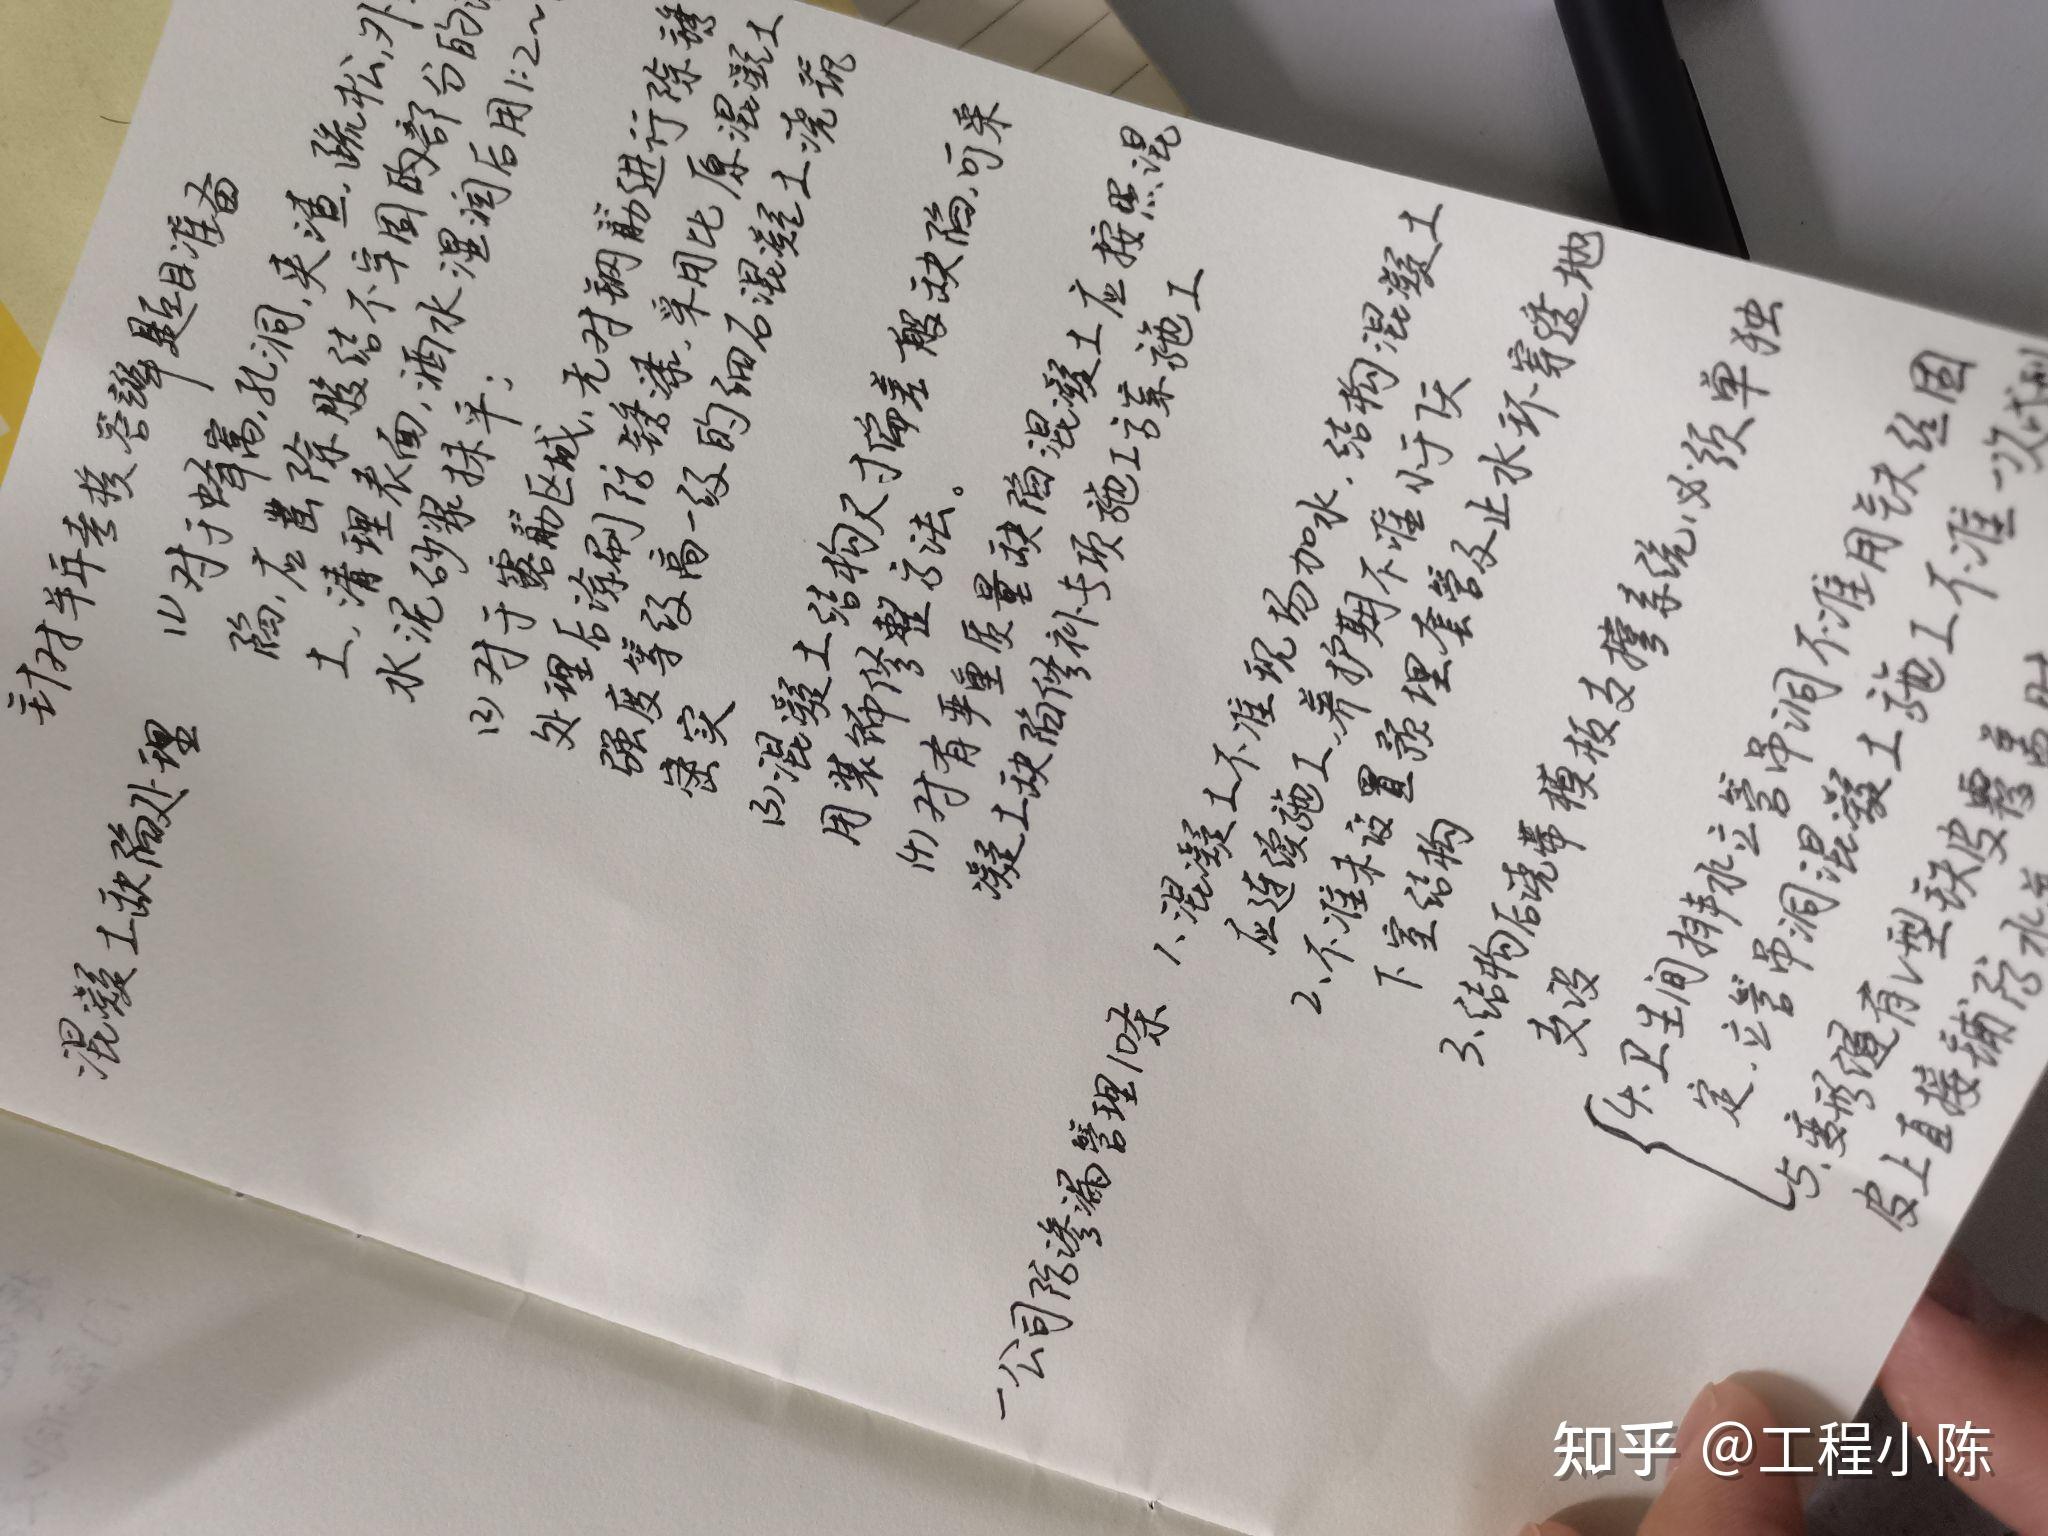 针对半年考核答辩题目准备
混凝土缺陷处理
(1) 对于蜂窝、孔洞、夹渣、疏松、外
陷,应凿除胶结不牢固的部分的
土,清理表面,洒水湿润后用1:2~
水泥砂浆抹平;
(2) 对于露筋区域,先对钢筋进行除锈
处理后涂刷防锈漆,采用比原混凝土
强度等级高一级的细石混凝土浇筑
密实
(3) 混凝土结构尺寸偏差一般缺陷,可采
用装饰修整方法。
(4) 对有严重质量缺陷混凝土应按照混
凝土缺陷修补专项施工方案施工
一公司防渗漏管理10条
1、混凝土不准现场加水,结构混凝土
应连续施工,养护期不准小于7天
2、不准未设置预埋套管及止水环穿越地
下室结构
3、结构后浇带模板支撑系统必须单独
支设
4、卫生间排水立管吊洞不准用铁丝固
定,立管吊洞混凝土施工不准一次成型
5、变形缝有V型铁皮覆盖时
皮上直接铺防水
知乎 @工程小陈